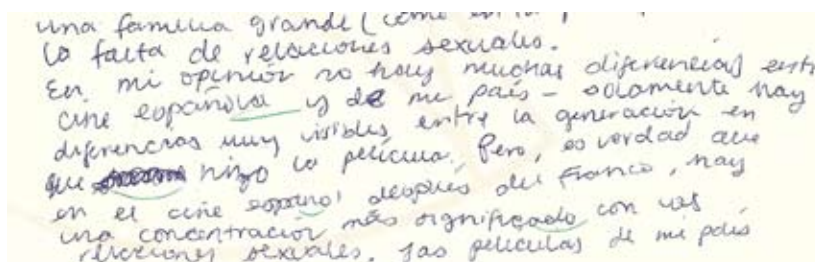 una familia grande (como en la
la falta de relaciones sexuales.
En mi opinión no hay muchas diferencias entr
cine española y de mi país - solamente hay
diferencias muy visibles entre la generación en
que hizo la película. Pero, es verdad que
en el cine espanol después del Franco, hay
una concentración más significado con las
relaciones sexuales. Las películas de mi país